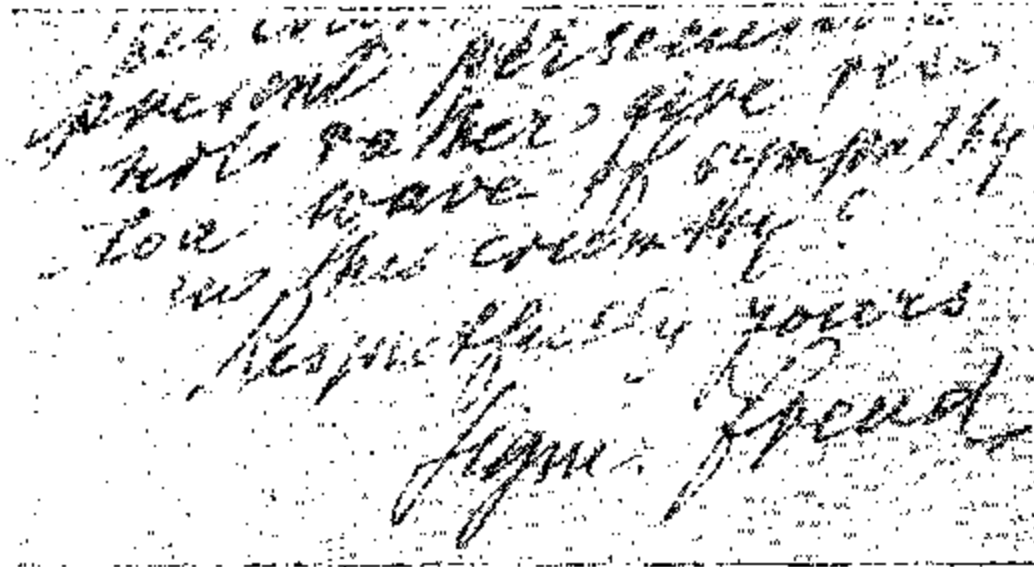 present persecution
not rather give rise
to a wave of sympathy
in this country?
Respectfully yours
Sigm. Freud